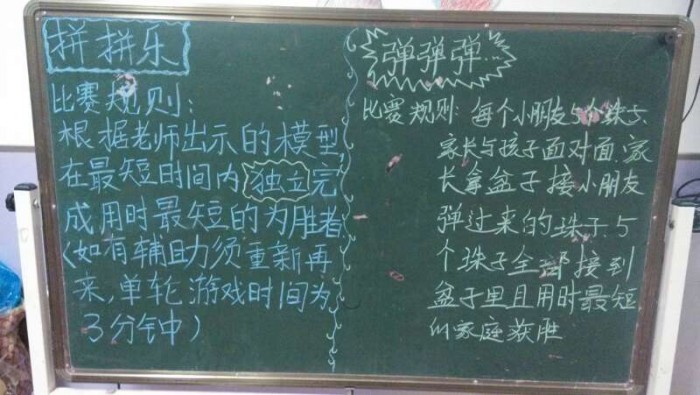 拼拼乐
比赛规则：
根据老师出示的模型，
在最短时间内独立完
成用时最短的为胜者
（如有辅助须重新再
来，单轮游戏时间为
3分钟中）
弹弹弹...
比赛规则：每个小朋友5个珠子、
家长与孩子面对面、家
长拿盆子接小朋友
弹过来的珠子.5
个珠子全部接到
盆子里且用时最短
的家庭获胜